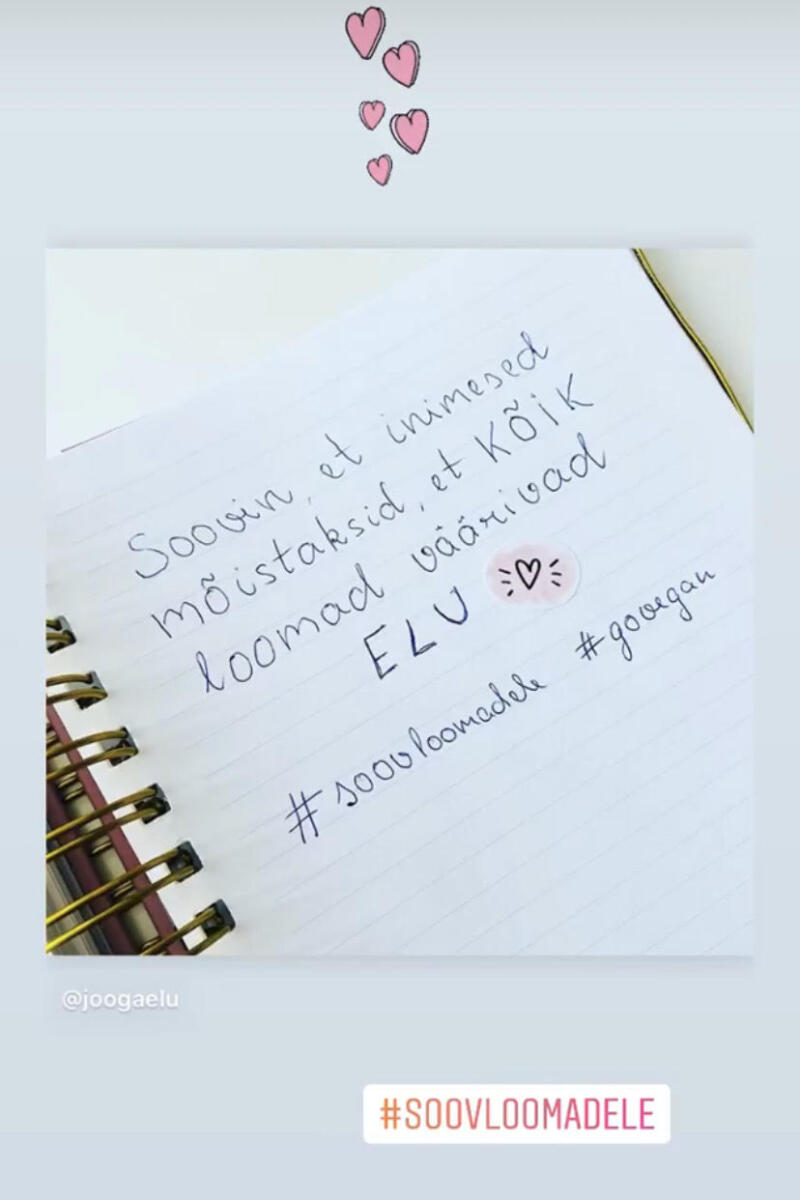 Soovin, et inimesed
mõistaksid, et KÕIK
loomad väärivad
ELU
#soovloomadele #govegan
@joogaelu
#SOOVLOOMADELE